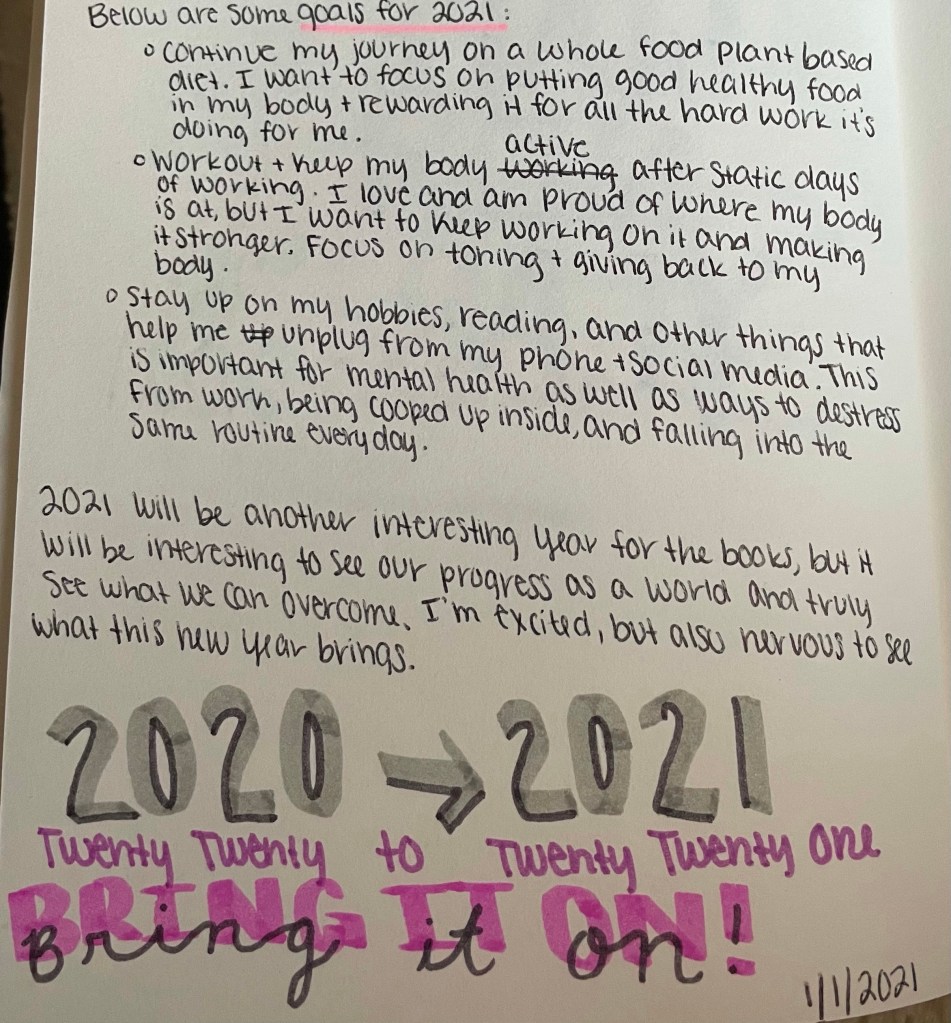 Below are some goals for 2021:
◦ continue my journey on a whole food plant based
diet. I want to focus on putting good healthy food
in my body + rewarding it for all the hard work it's
doing for me.
active
◦ Workout + keep my body working after static days
of working. I love and am proud of where my body
is at, but I want to keep working on it and making
it stronger. Focus on toning + giving back to my
body.
◦ Stay up on my hobbies, reading, and other things that
help me unplug from my phone + social media. This
is important for mental health as well as ways to destress
from work, being cooped up inside, and falling into the
same routine everyday.
2021 will be another interesting year for the books, but it
will be interesting to see our progress as a world and truly
see what we can overcome. I'm excited, but also nervous to see
what this new year brings.
2020 → 2021
Twenty Twenty to Twenty Twenty One
BRING IT ON!
Bring it on!
1/1/2021